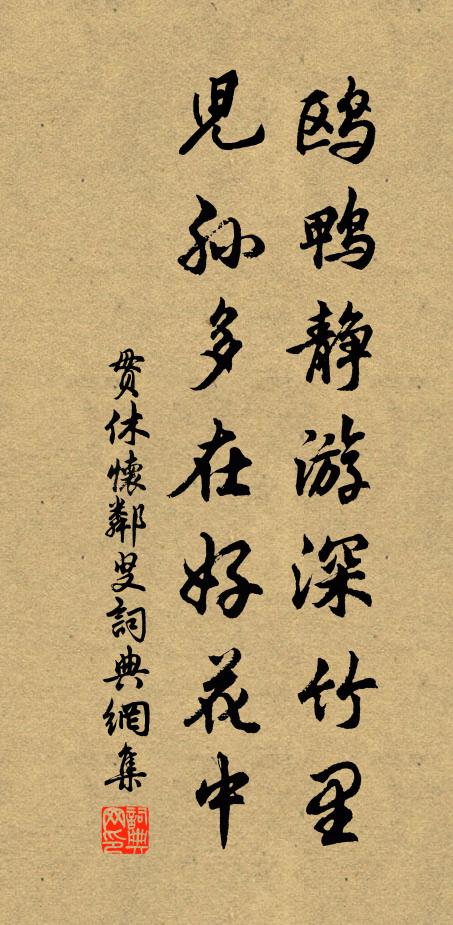 鸥鸭静游深竹里
児孙多在好花中
贯休懷鄰叟詞典網集
詞典网印